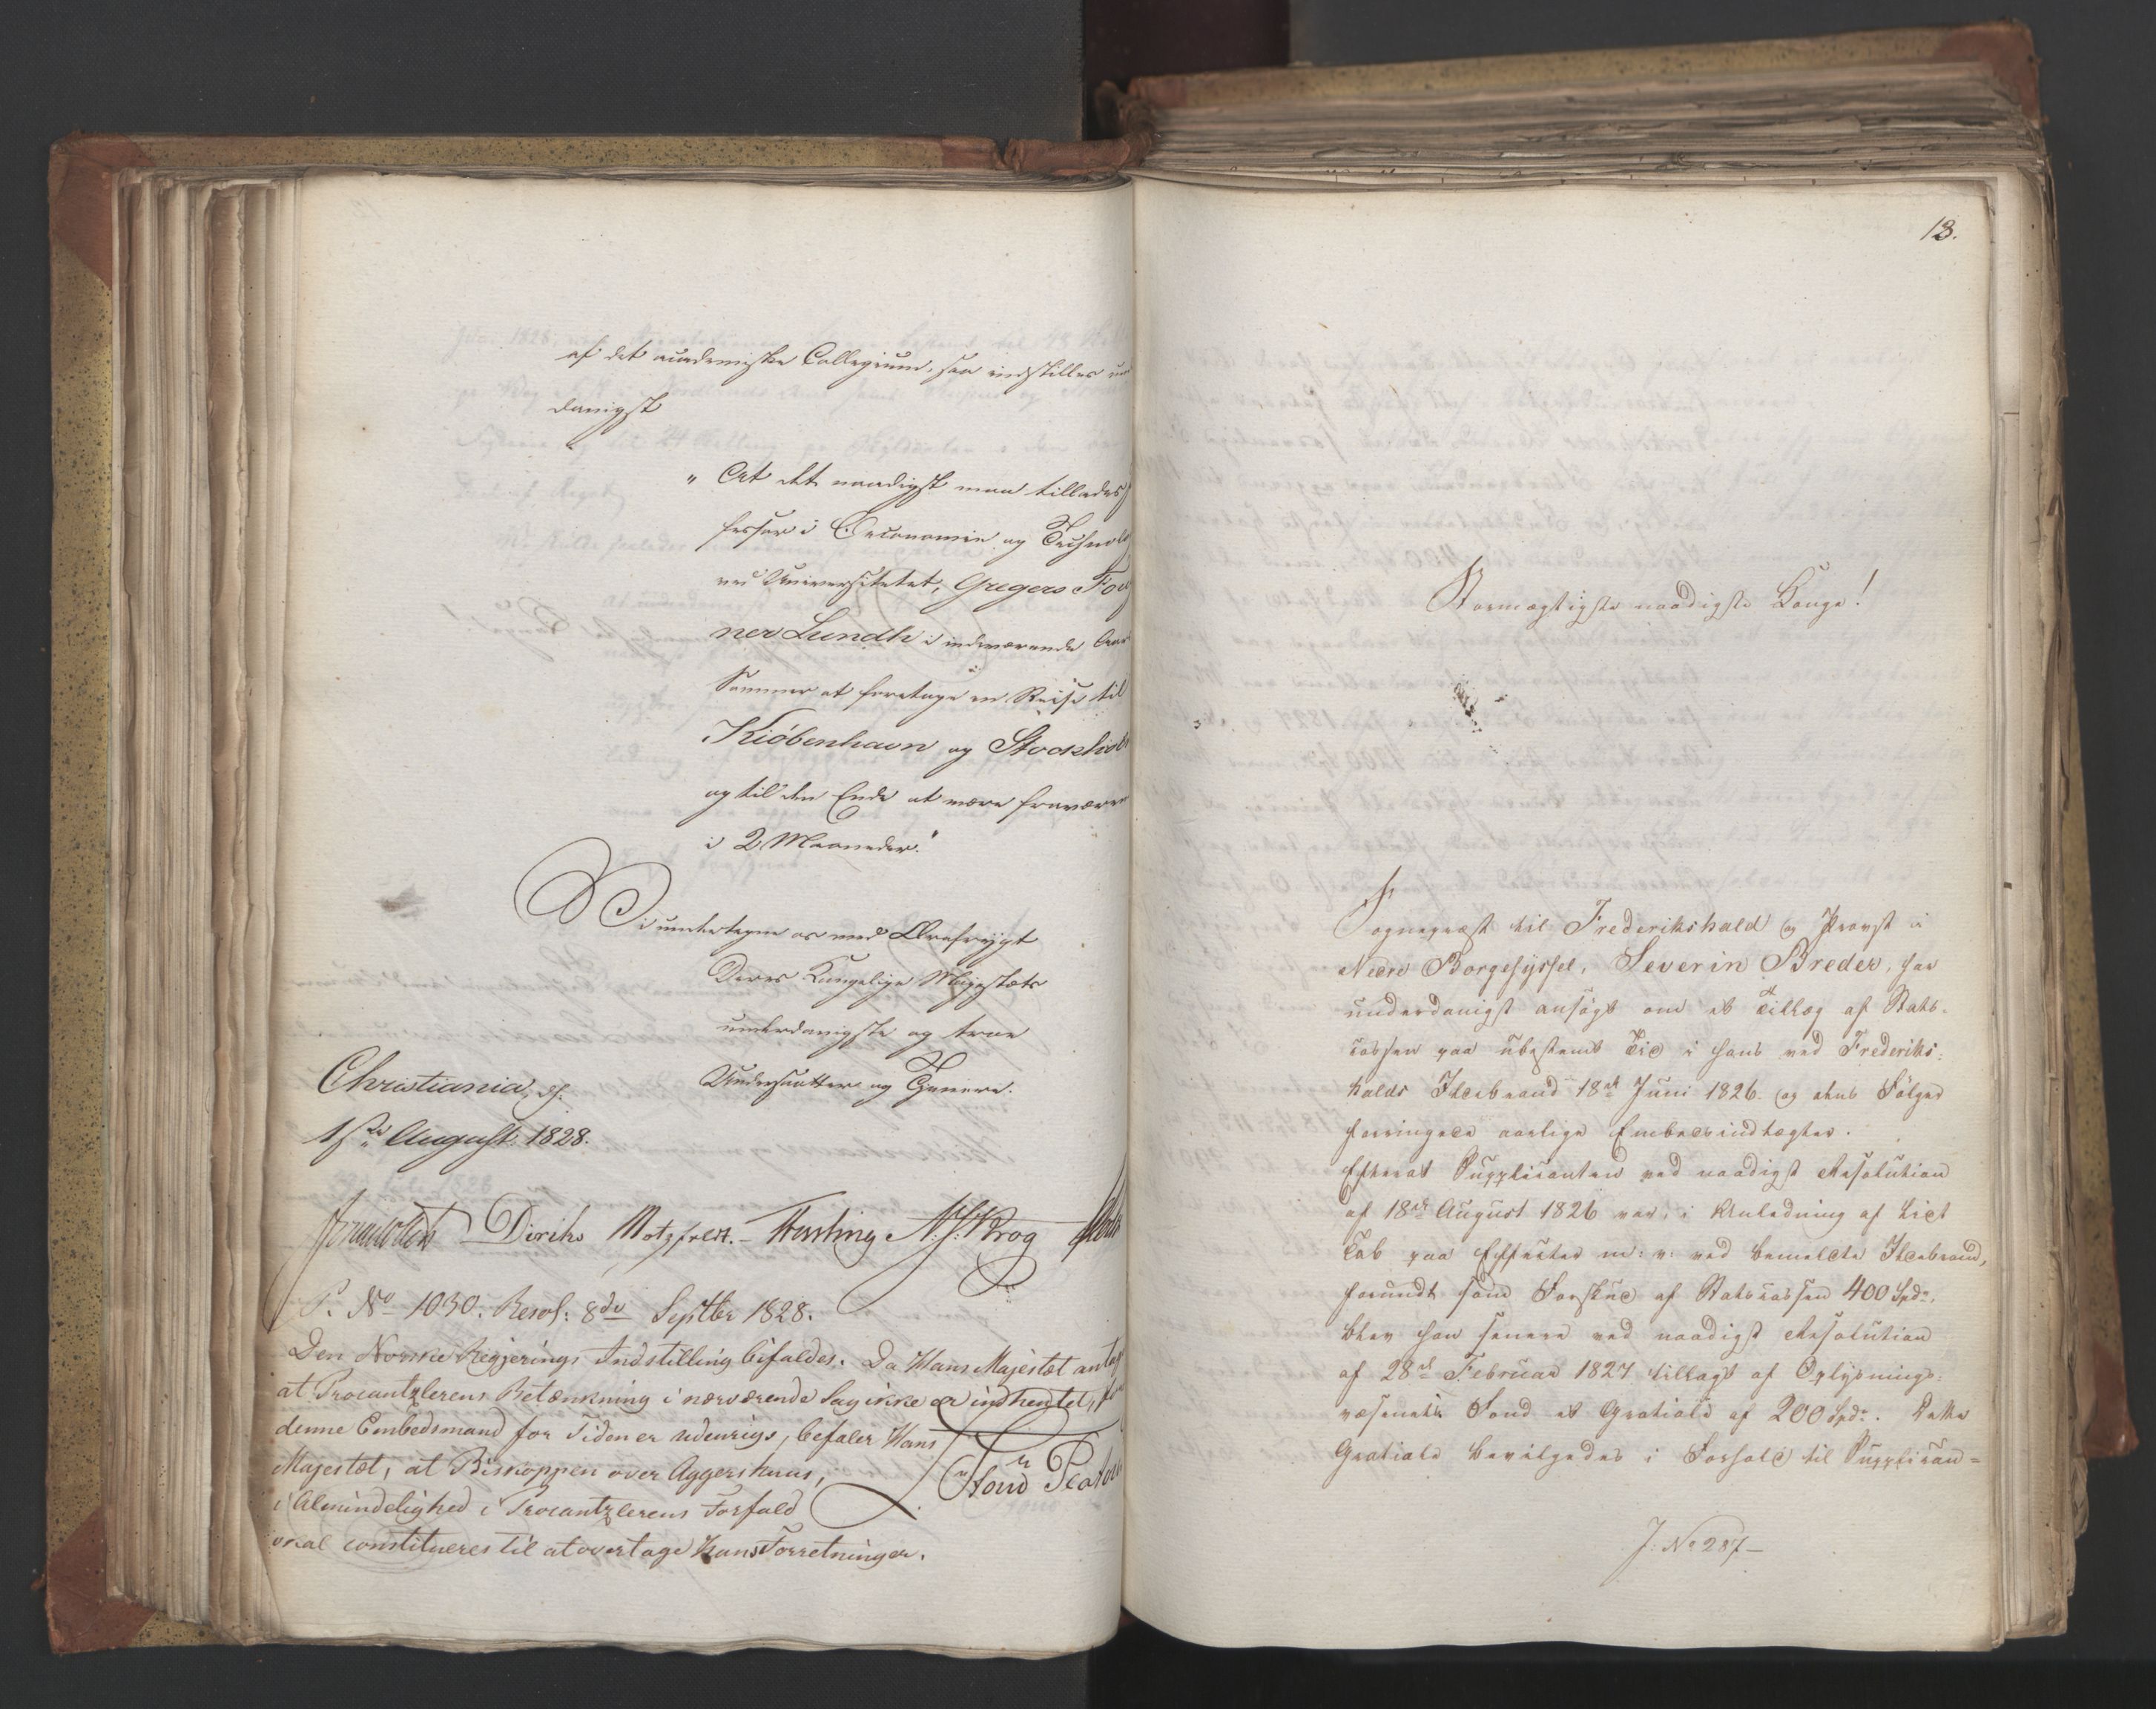 af det academiske Collegium, saa indstilles un
danigst
" At det naadigst maa tillades
fessor i Oeconomie og Technolo
ved Universitetet, Gregers Fou
ner Lundh i indeværende Aars
Sommer at foretage en Reise til
Kiöbenhavn og Stockhol
og til den Ende at være fraværen
i 2 Maaneder."
Vi undertegne os med Ærefrygt
Deres Kongelige Majestæts
underdanigste og troe
Undersaatter og Tjenere.
Christiania, d.
1ste August 1828.
Diriks Motzfeldt. Fasting N. J. Krog
P. No 1030. Resol: 8de Septbr 1828.
Den Norske Regjerings Indstilling bifaldes. Da Hans Majestæt antag
at Procantzlerens Betænkning i nærværende Sag ikke er indhentet,
denne Embedsmand for Tiden er udenrigs, befaler Hans
Majestæt, at Biskoppen over Aggershuus,
i Almindelighed i Procantzlerens Forfald
skal constitueres til at overtage Hans Forretninger.
13.
Stormægtigste naadigste Konge!
Sognepræst til Frederikshald og Provst i
Nedre Borgesyssel, Severin Breder, har
underdanigst ansögt om et Tillæg af Stats-
cassen paa ubestemt Tid i hans ved Frederiks-
halds Ildebrand 18de Juni 1826 og dens Fölger
forringede aarlige Embedsindtægter.
Efterat Supplicanten ved naadigst Resolution
af 18de August 1826 var, i Anledning af lidt
Tab paa Effecter m: v: ved bemeldte Ildebrand,
forundt som Forskud af Statscassen 400 Spdr.
blev han senere ved naadigst Resolution
af 28de Februar 1827 tillagt af Oplysnings-
væsenets Fond et Gratiale af 200 Spdr. Dette
Gratiale bevilgedes i Forhold til Supplican-
J: No 287